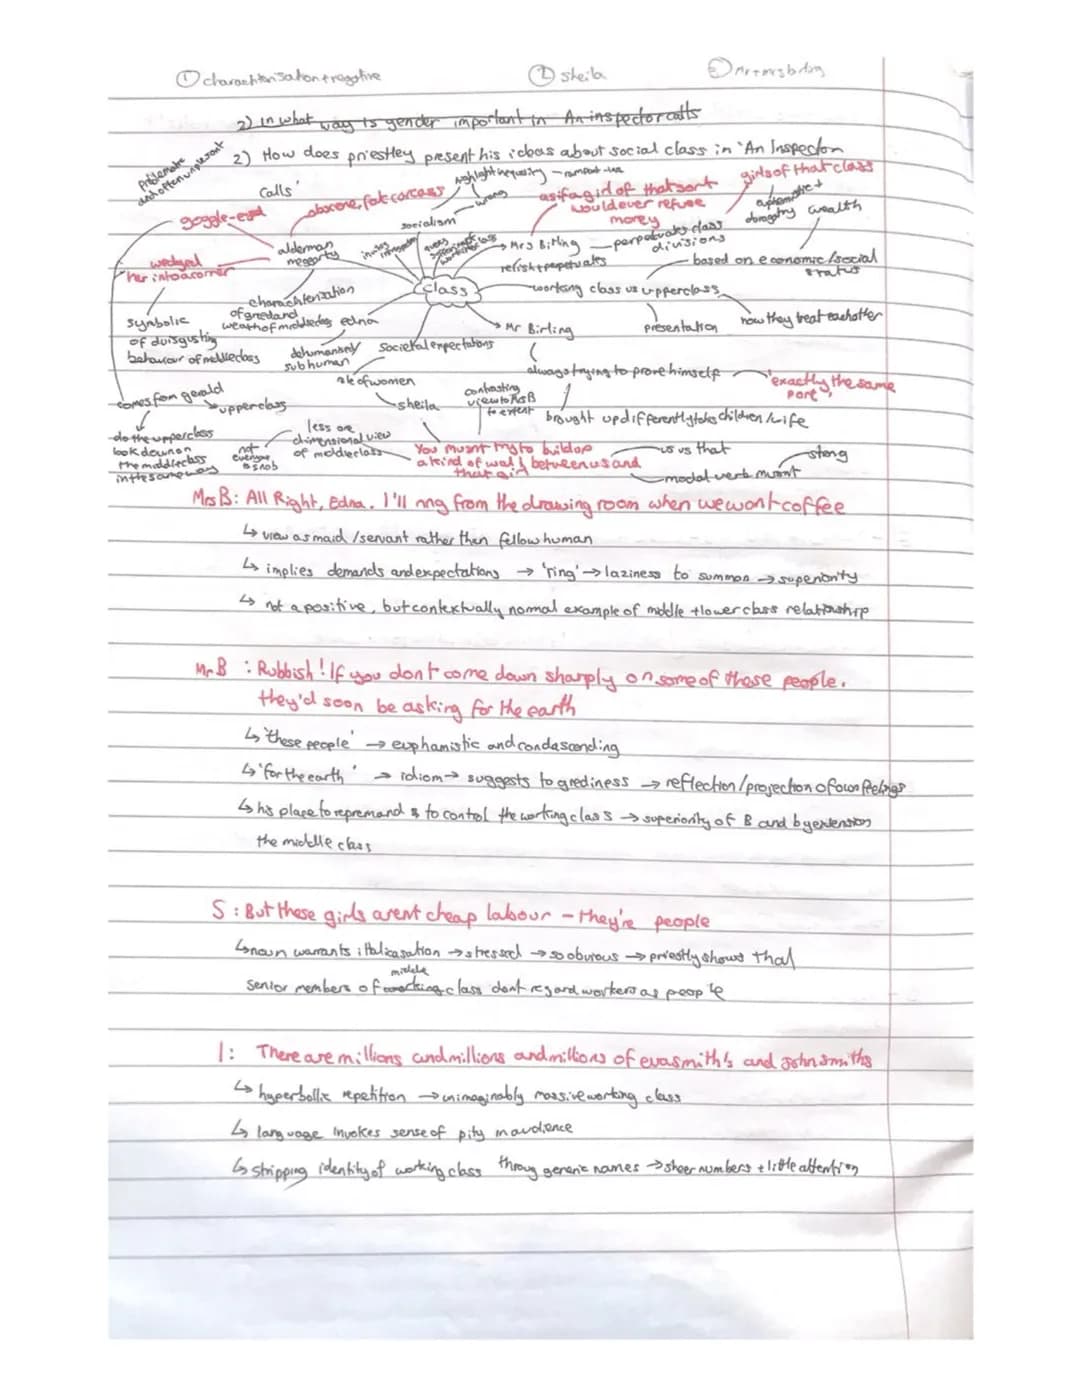 ① charachterisation + negative
② Sheila
③ Mr + mrs birling
2) in what way is gender important in An inspector calls
2) How does priestley present his ideas about social class in 'An Inspector
Calls'
problematic
and often unpleasant
goggle-eyed
obscene, fat carcass
highlight inequality - rampant
wrong
as if a girl of that sort
would ever refuse
money
girls of that class
derogatory
wealth
socialism
alderman
meggarty
Mrs Birling
perpetuates class
divisions
relish + perpetuates
based on economic/social
status
wedged
her into a corner
class
working class vs upperclass
presentation
how they treat eachother
symbolic
of duisgusting
behaviour of middleclass
charachterization
of greed and
wealth of middleclass
edna
dehumanised/
subhuman
Societal expectations
Mr Birling
always trying to prove himself
'exactly the same
port'
role of women
sheila
contrasting
view to Mrs B
to extent
brought up differently to his children/wife
comes from gerald
upperclass
do the upperclass
look down on
the middleclass
in the same way
not
everyone
a snob
less one
dimensional view
of middleclass
You musnt try to build up
a kind of wall between us and
that girl
us vs that
strong
modal verb musnt
Mrs B: All Right, Edna. I'll ring from the drawing room when we want coffee
↳ view as maid / servant rather then fellow human
↳ implies demands and expectations → 'ring' → laziness to summon → superiority
↳ not a positive, but contextually normal example of middle + lower class relationship
Mr B : Rubbish! If you dont come down sharply on some of these people.
they'd soon be asking for the earth
↳ 'these people' → euphamistic and condascending
↳ 'for the earth' → idiom → suggests to grediness → reflection/projection of own feelings
↳ his place to repremand & to control the working class → superiority of B and by extension
the middle class
S : But these girls arent cheap labour - they're people
↳ noun warrants italicasation → stressed → so obvious → priestly shows that
middle
senior members of working class dont regard workers as people
I: There are millions and millions and millions of eva smith's and john smiths
↳ hyperbolic repetition → unimaginably massive working class
↳ language invokes sense of pity in audience
↳ stripping identity of working class throug generic names → sheer numbers + little attention